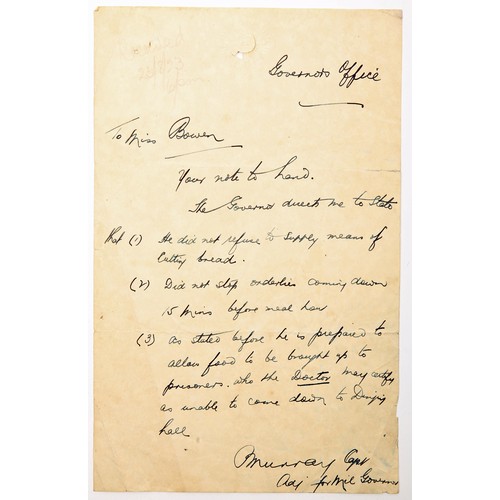 Governors Office
To Miss Bowen
Your note to hand.
The Governor directs me to State
that (1) He did not refuse to supply means of
Cutting bread.
(2) Did not stop orderlies coming down
15 Mins before meal hour
(3) As stated before he is prepared to
allow food to be brought up to
prisoners. who the Doctor may certify
as unable to come down to Dining
hall
Murray Capt
Adj for Mil Governor